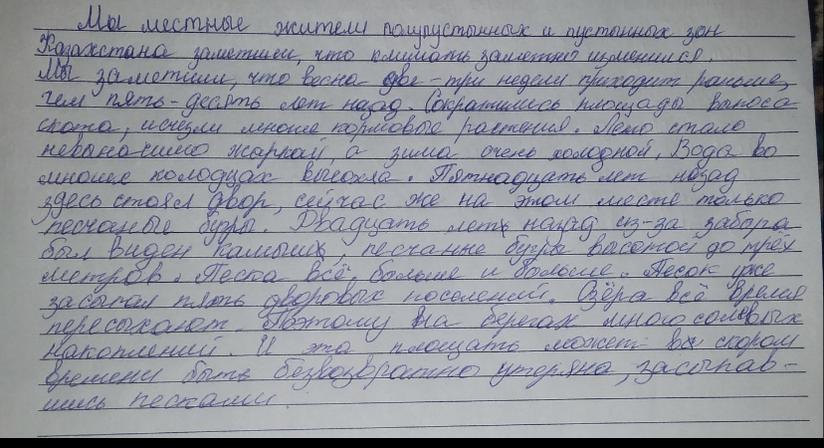 Мы местные жители полупустынных и пустынных зон
Казахстана заметили, что климать заметно изменился.
Мы заметили, что весна две-три недели приходит раньше,
чем пять-десять лет назад. Сократились площады выпаса
скота, исчезли многие кормовые растения. Лето стало
невыносимо жаркой, а зима очень холодной. Вода во
многих колодцах высохла. Пятнадцать лет назад
здесь стоял двор, сейчас же на этом месте только
песчаные бугры. Двадцать лет назад из-за забора
был виден камыш, песчаные бугры высотой до трёх
метров. Песка всё больше и больше. Песок уже
засыпал пять дворовых поселений. Озёра всё время
пересыхают. Поэтому на берегах много солевых
накоплений. И эта площать может в скором
времени быть безвозвратно утеряна, засыпав-
шись песками.